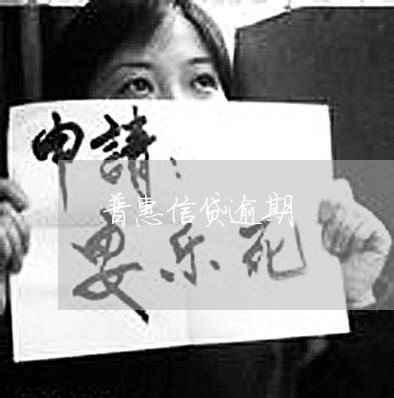 申請：
普惠信贷逾期
要乐死